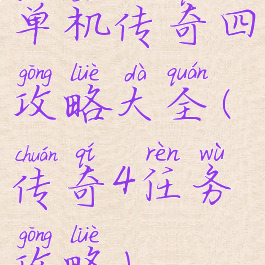 单机传奇四
gōng lüè dà quán
攻略大全(
chuán qí rèn wù
传奇4任务
gōng lüè
攻略)